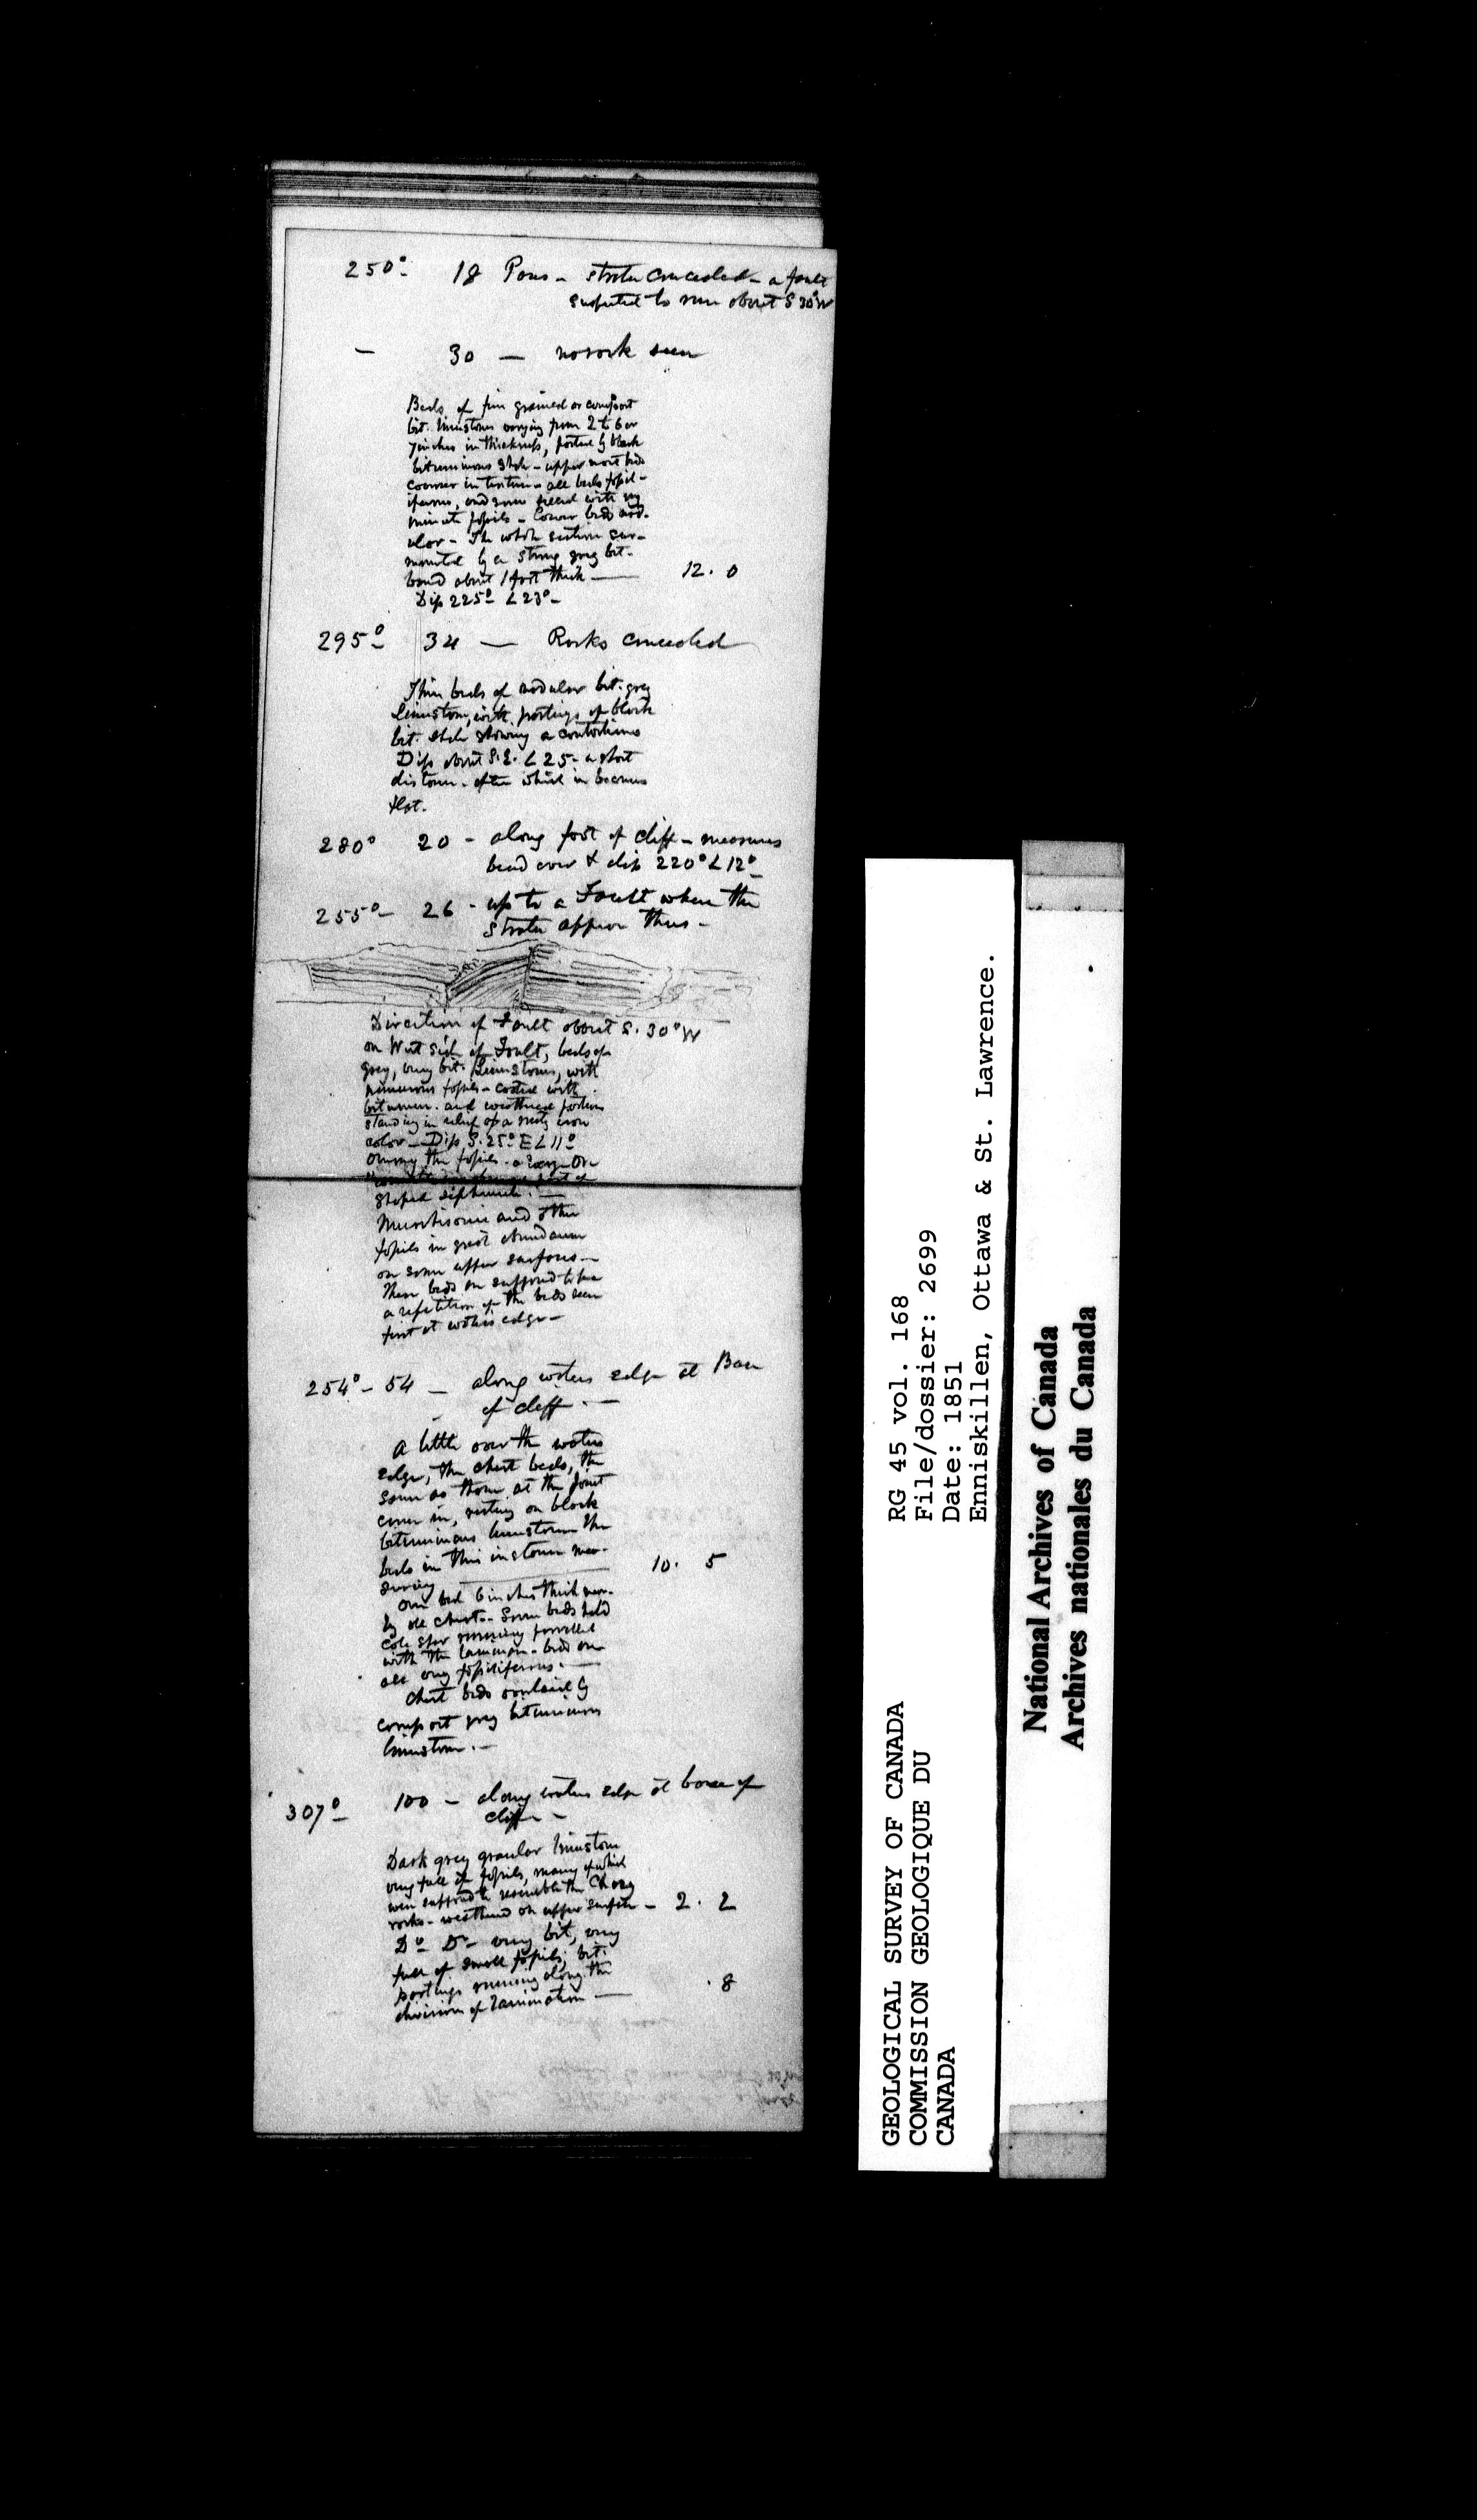 250° 18 Paces - strata concealed - a fault
suspected to run about S 30° W
- 30 - no rock seen
Beds of fine grained or compact
bit. limestones varying from 2 to 6 or
7 inches in thickness, parted by black
bituminous shale - upper most beds
coarser in texture - all beds fossil-
iferous, and some filled with very
minute fossils - Lower beds nod-
ular - The whole section sur-
mounted by a strong grey bit.
band about 1 foot thick — 12. 0
Dip 225° ∠23° -
295° 34 — Rocks concealed
Thin beds of nodular bit. grey
Limestone, with partings of black
bit. shale showing a contortions
Dip about S.E. ∠25 - a short
distance - after which in becomes
flat.
280° 20 - along foot of cliff - measures
bend over & dip 220° ∠12°
255° - 26 - up to a Fault where the
strata appear thus -
Direction of Fault about S. 30° W
on West side of Fault, beds of
grey, very bit. Limestone, with
numerous fossils - coated with
bitumen. and weathered portions
standing in relief of a rusty iron
color - Dip S. 25° E ∠11°
among the fossils - a large Or
shaped siphuncle. —
Murchisonia and other
fossils in great abundance
on some upper surfaces -
These beds are supposed to be
a repetition of the beds seen
first at waters edge -
254° - 54 - along waters edge at Base
of cliff. —
A little over the waters
edge, the chert beds, the
same as those at the point
come in, resting on black
bituminous limestone the
beds in this instance mea-
suring — 10. 5
One bed 6 inches thick near-
ly all chert - Some beds hold
calc spar running parallel
with the laminae - beds are
all very fossiliferous. —
Chert beds overlaid by
compact grey bituminous
limestone. -
307° 100 - along waters edge at base of
cliff -
Dark grey granular limestone
very full of fossils, many of which
were supposed to resemble the Chazy
rocks - weathered on upper surface - 2. 2
D° D° - very bit, very
full of small fossils, bit.
partings running along the
division of lamination — . 8
GEOLOGICAL SURVEY OF CANADA
COMMISSION GEOLOGIQUE DU
CANADA
RG 45 vol. 168
File/dossier: 2699
Date: 1851
Enniskillen, Ottawa & St. Lawrence.
National Archives of Canada
Archives nationales du Canada